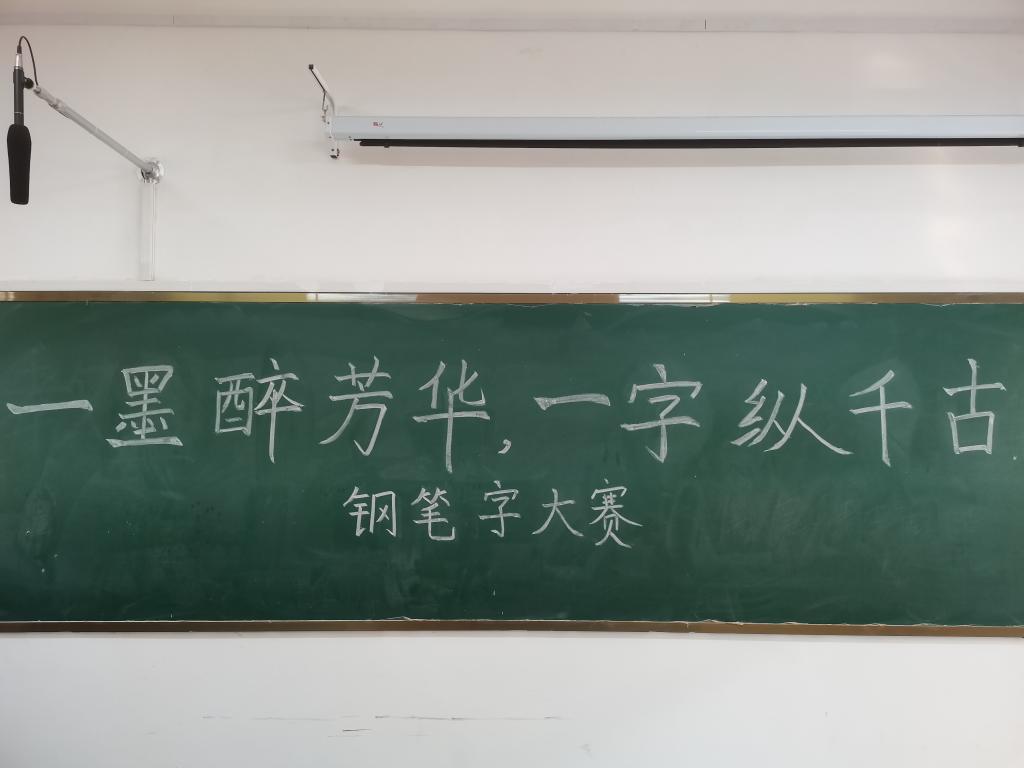 一墨醉芳华,一字纵千古
钢笔字大赛